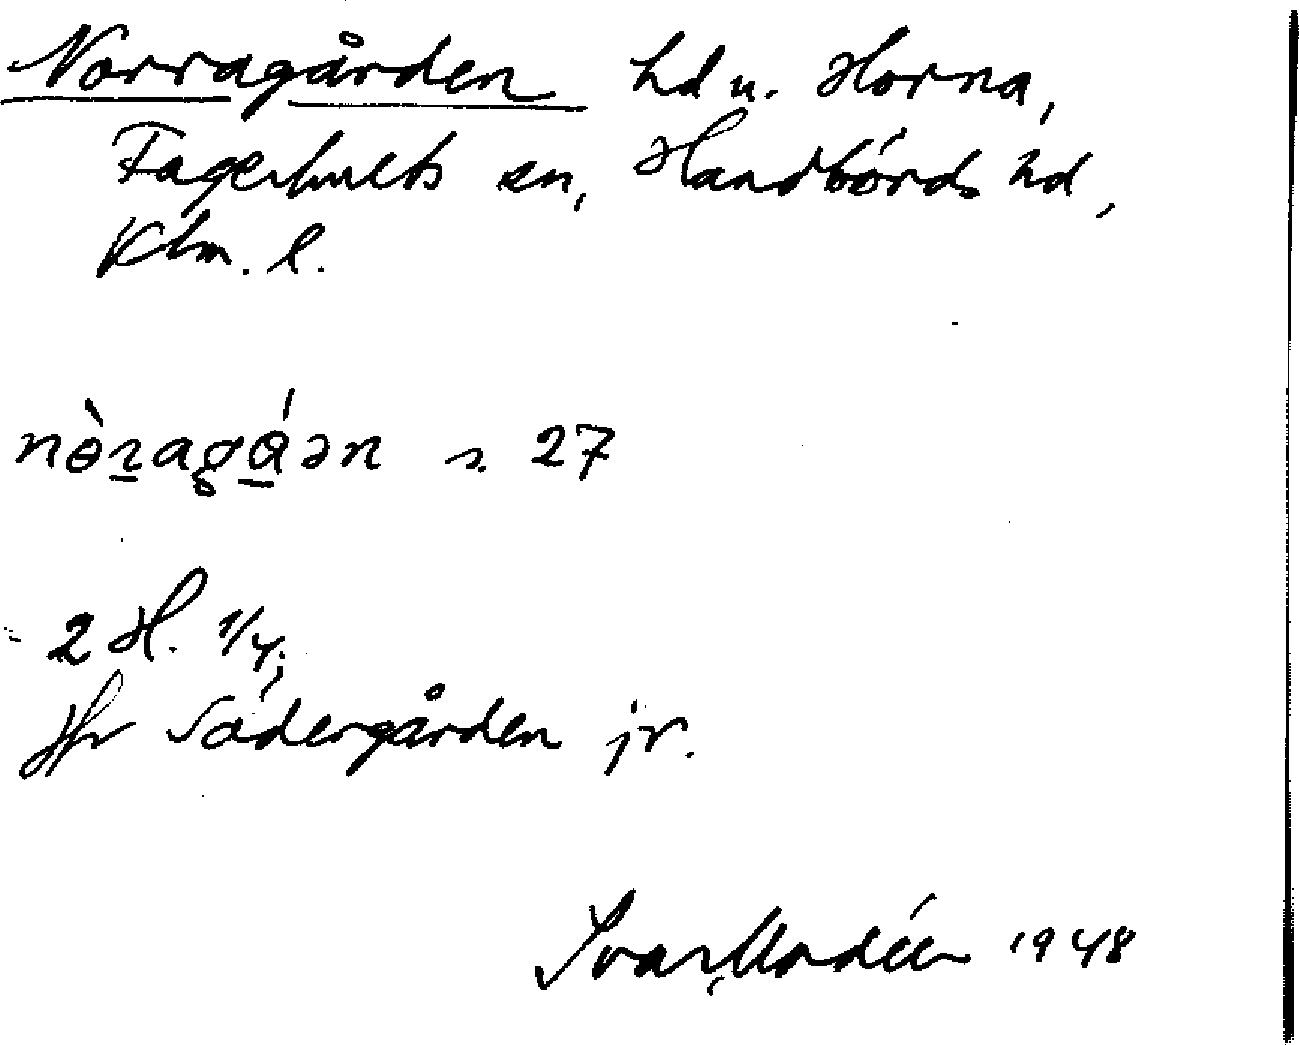 Norragården hd u. Horna,
Fagerhults sn, Handbörds hd,
Klm. l.
nɵ̀ɿagɑ́ən s. 27
2 H. 1/4;
Hr Södergården jr.
Ivar Modéer 1948